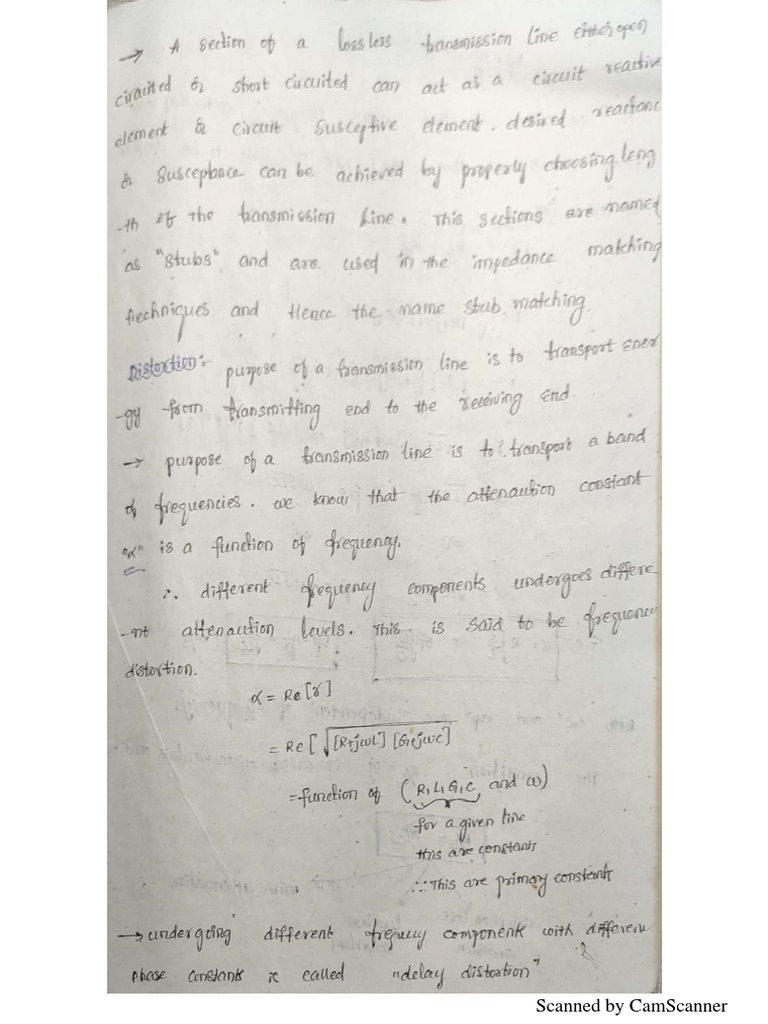 → A section of a lossless transmission line either open
circuited or short circuited can act as a circuit reactive
element or circuit susceptive element. desired reactanc
or susceptance can be achieved by properly choosing leng
-th of the transmission line. This sections are named
as "stubs" and are used in the impedance matching
techniques and Hence the name stub matching.
Distortion:- purpose of a transmission line is to transport ener
-gy from transmitting end to the receiving end.
→ purpose of a transmission line is to transport a band
of frequencies. we know that the attenaution constant
"α" is a function of frequency.
∴ different frequency components undergoes differe
-nt attenaution levels. This is said to be frequency
distortion.
α = Re[γ]
= Re[√[R+jωL] [G+jωC]
= function of (R, L, G, C, and ω)
for a given line
this are constants
∴ This are primary constants
→ undergoing different frequcy component with different
phase constants is called "delay distortion"
Scanned by CamScanner